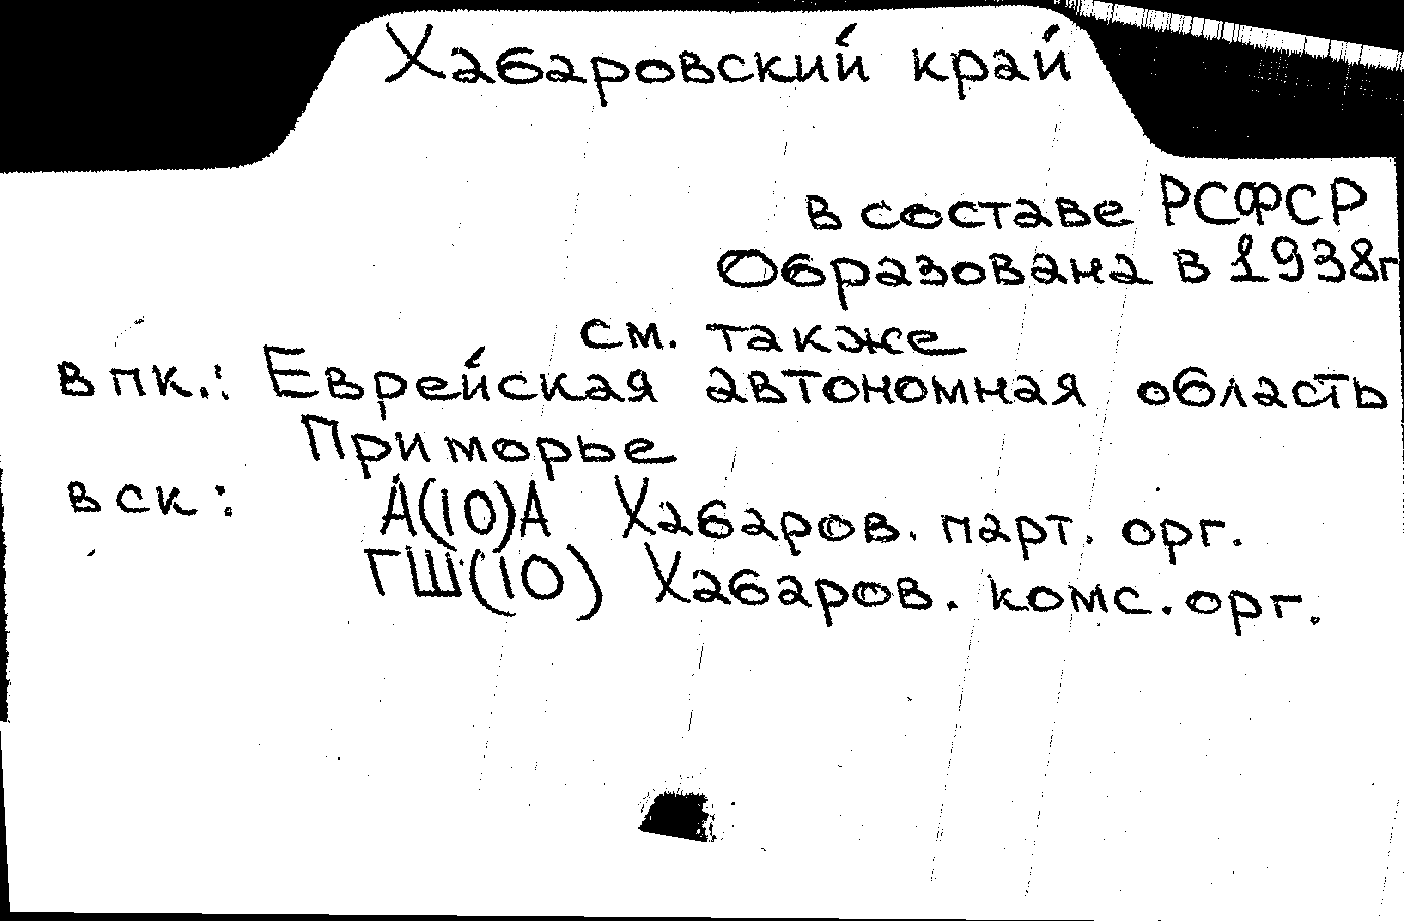 Хабаровский край
в составе РСФСР
Образована в 1938г
см. также
в пк.: Еврейская автономная область
Приморье
в ск: А(10)А Хабаров. парт. орг.
ГШ(10) Хабаров. комс. орг.